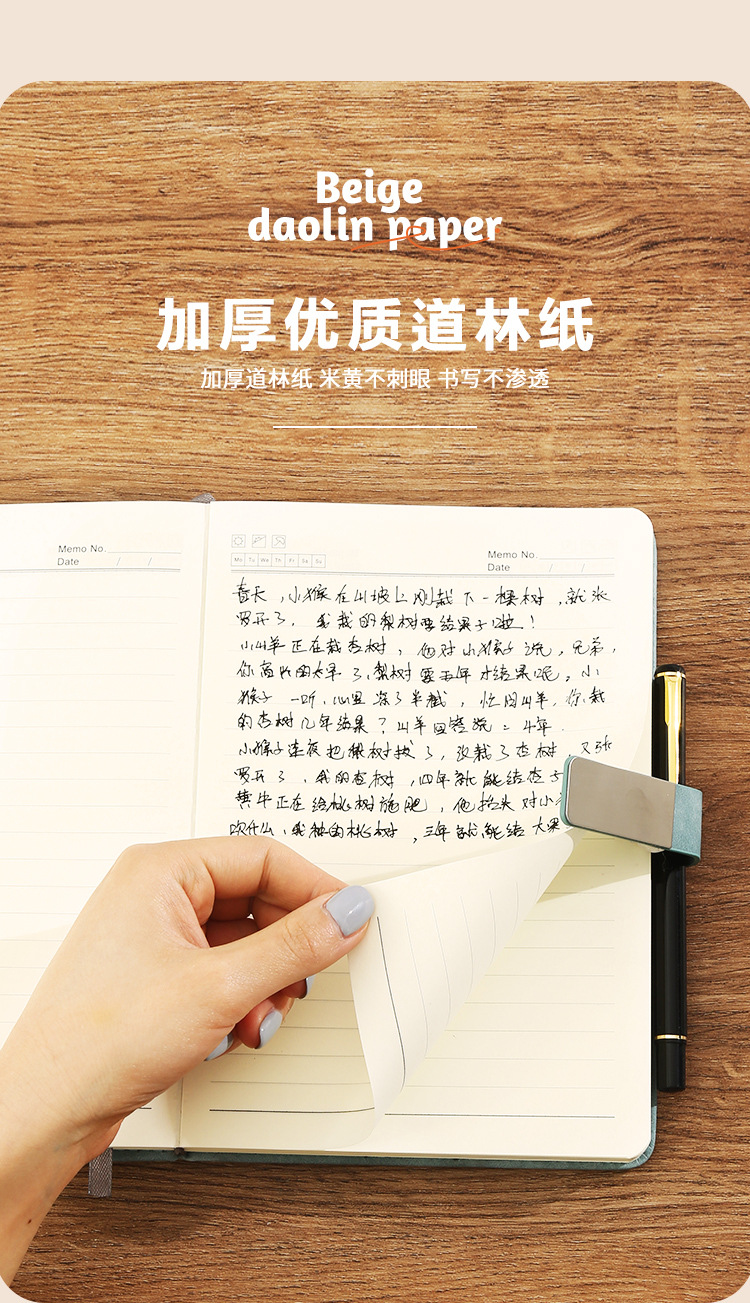 Beige
daolin paper
加厚优质道林纸
加厚道林纸 米黄不刺眼 书写不渗透
Memo No.
Date / /
Mo Tu We Th Fr Sa Su
Memo No.
Date / /
春天，小猴在山坡上刚栽下一棵树，就张
罗开了，我栽的梨树要结果子啦！
小山羊正在栽杏树，他对小猴子说，兄弟，
你高兴的太早了，梨树要五年才结果呢。小
猴子一听，心里凉了半截，忙问山羊，你栽
的杏树几年结果？山羊回答说：4年.
小猴子连夜把梨树拔了，没栽了杏树，又张
罗开了，我的杏树，四年就能结杏子
黄牛正在给桃树施肥，他抬头对小
吹什么，我种的桃树，三年就能结大果